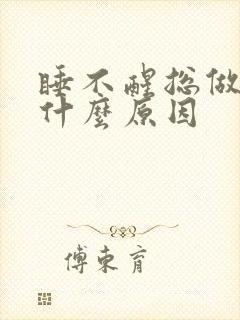 睡不醒总做
什麼原因
傅東育